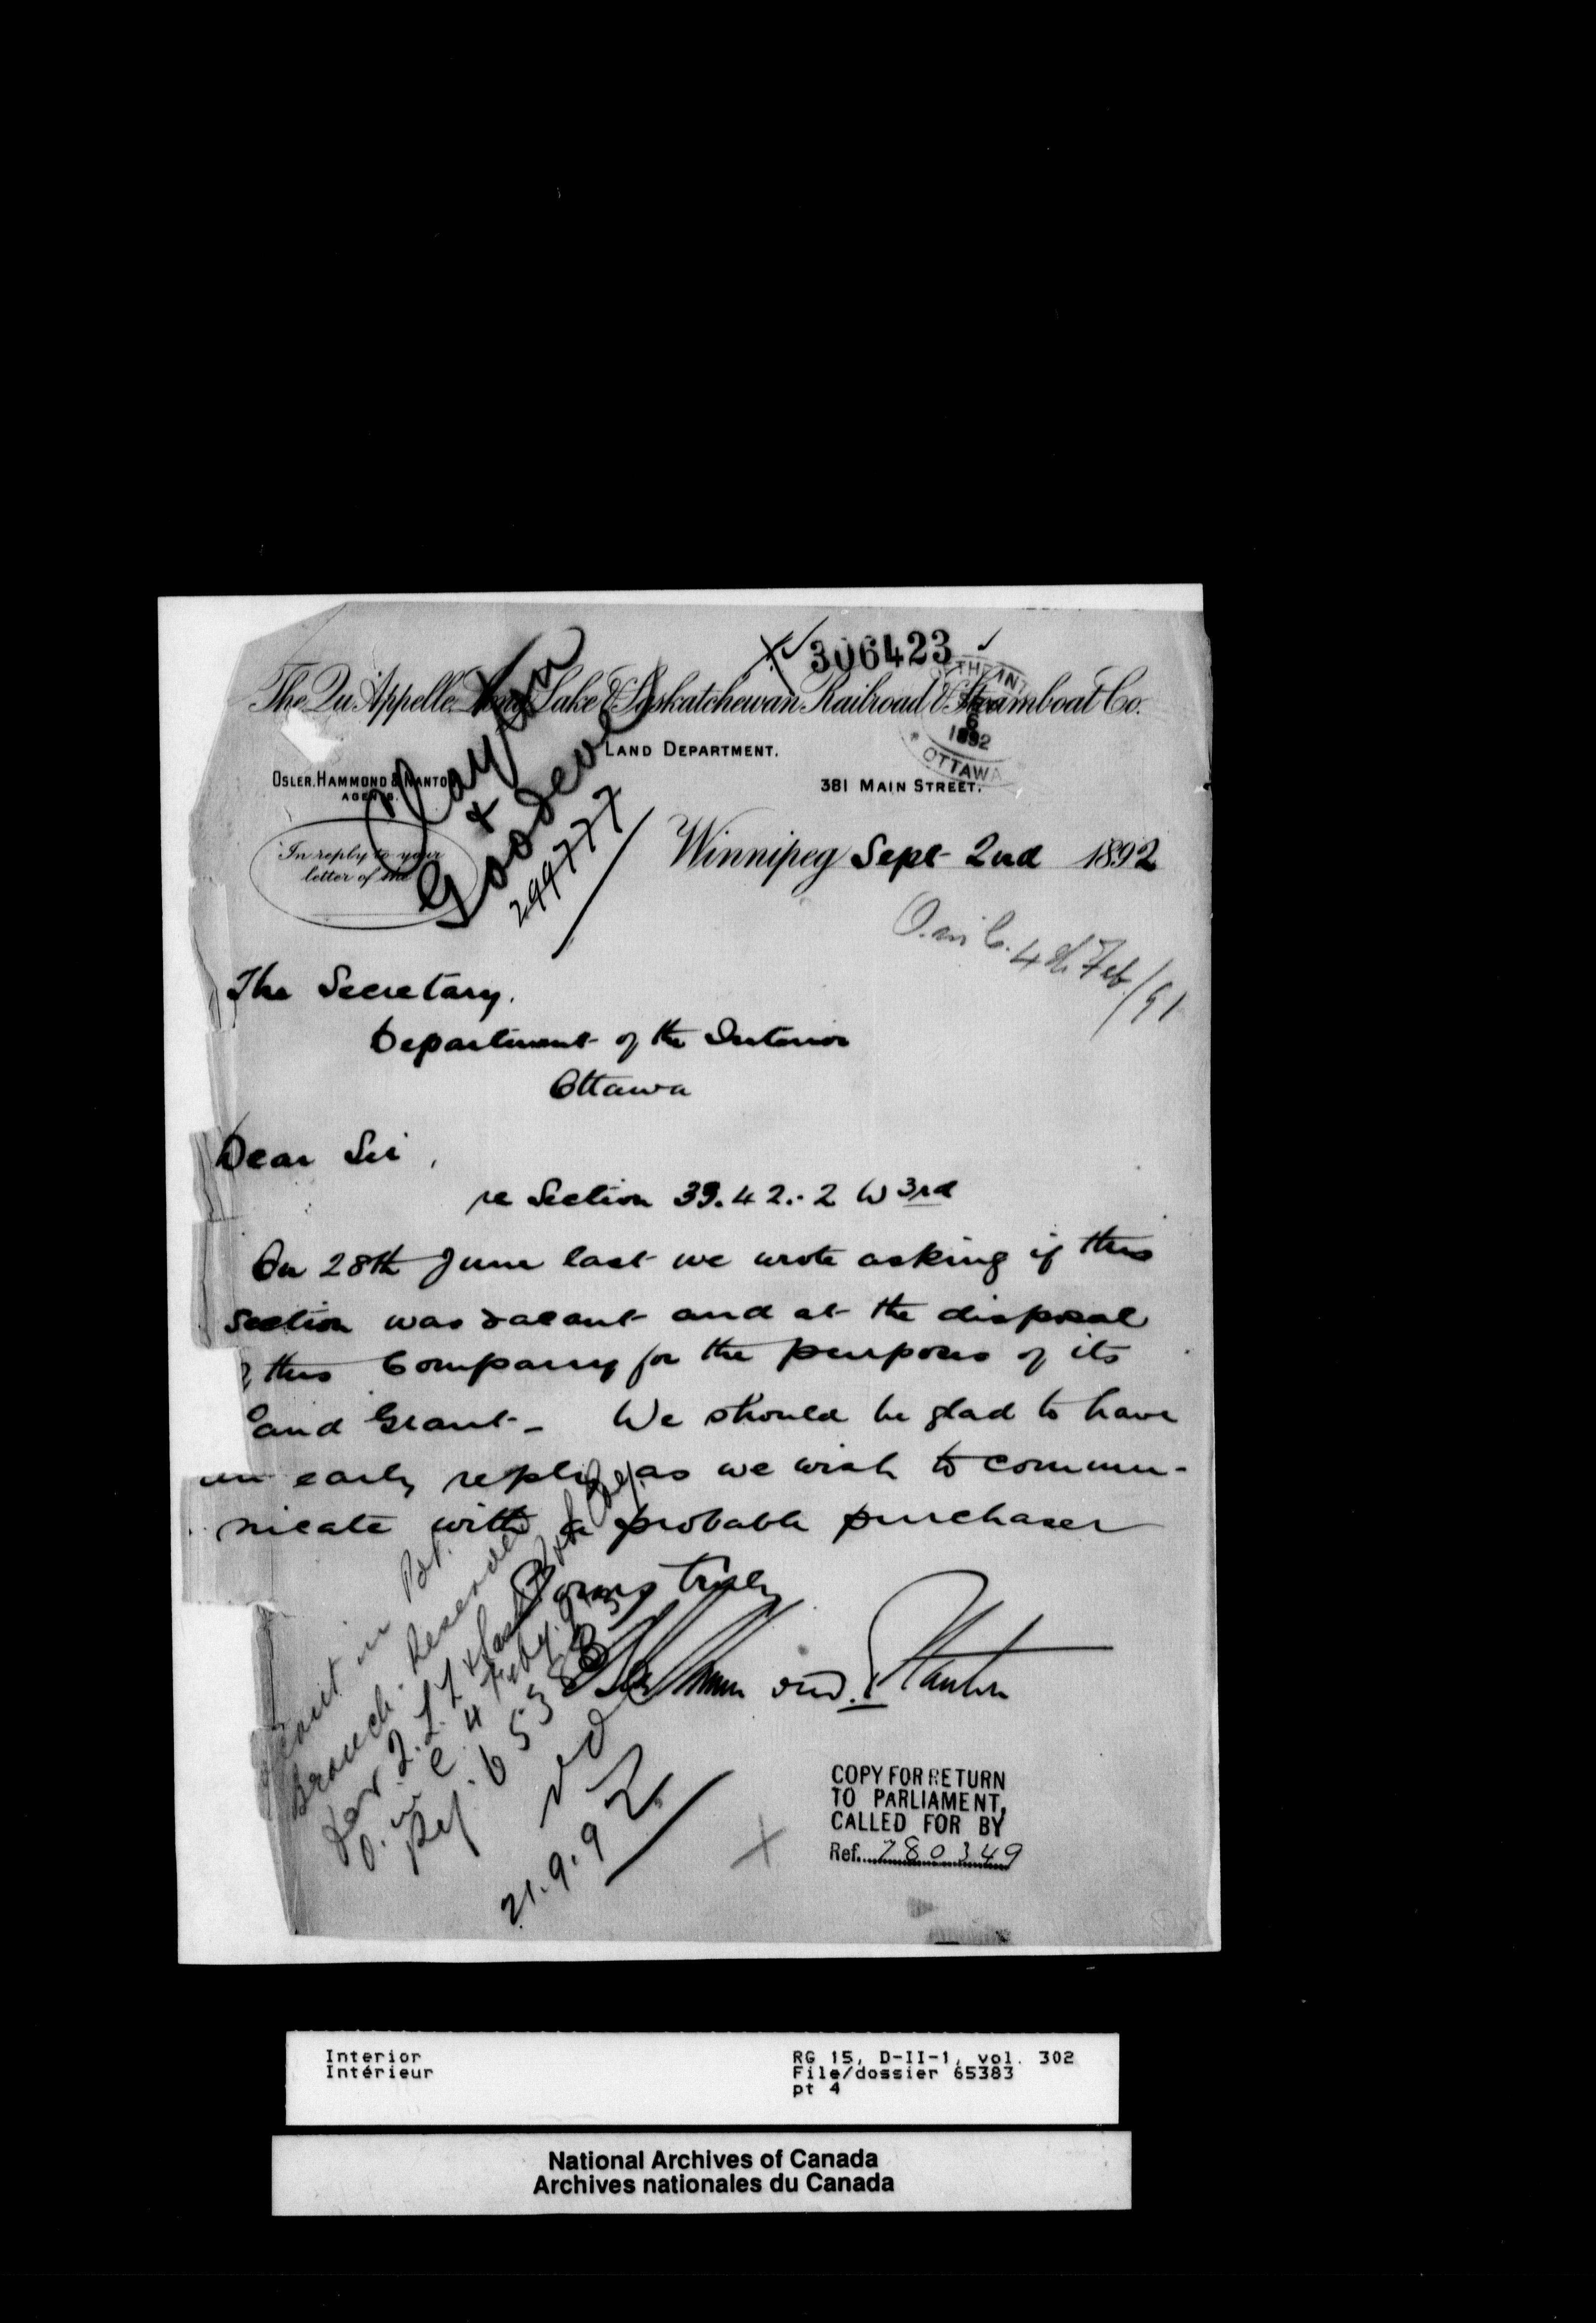 306423
The Qu'Appelle, Long Lake & Saskatchewan Railroad & Steamboat Co.
LAND DEPARTMENT.
6
1892
OTTAWA
OSLER, HAMMOND & NANTON
AGENTS.
381 MAIN STREET.
&
Goodeve
299777
In reply to your
letter of the
Winnipeg Sept 2nd 1892
O. in C. 4th Feb/91
The Secretary.
Department of the Interior
Ottawa
Dear Sir,
re Section 39.42.-2 W 3rd
On 28th June last we wrote asking if this
Section was vacant and at the disposal
this Company for the purposes of its
Land Grant - We should be glad to have
an early reply as we wish to commu-
nicate with a probable purchaser
Yours truly
Osler Hammond & Nanton
in Pat.
Branch. Reserved
for Q.L.L. & Sask
O. in C. 4 Feby. 91
Ref. 65383
21.9.92
COPY FOR RETURN
TO PARLIAMENT,
CALLED FOR BY
Ref. 280349
Interior
Intérieur
RG 15, D-II-1, vol. 302
File/dossier 65383
pt 4
National Archives of Canada
Archives nationales du Canada